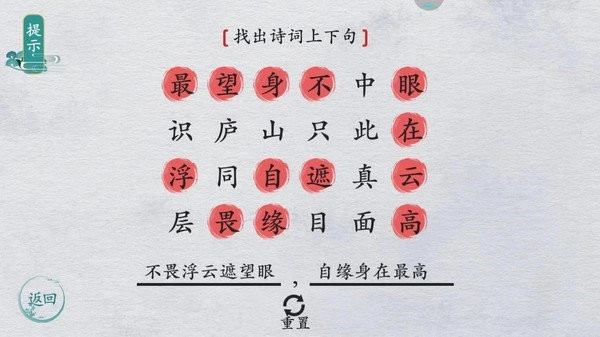 提示
【找出诗词上下句】
最望身不中眼
识庐山只此在
浮同自遮真云
层畏缘目面高
不畏浮云遮望眼，自缘身在最高
返回
重置